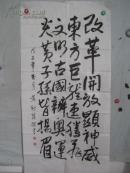 改革開放顯神威
東方巨龍速騰飛
文明古國辦奥運
炎黄子孫皆揚眉